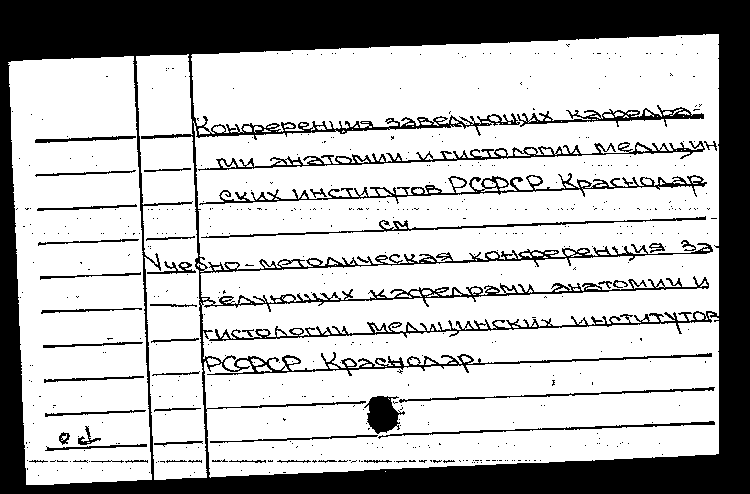 Конференция заведующих кафедра-
ми анатомии и гистологии медицин
ских институтов РСФСР. Краснодар
см.
Учебно-методическая конференция за-
ведующих кафедрами анатомии и
гистологии медицинских институтов
РСФСР. Краснодар.